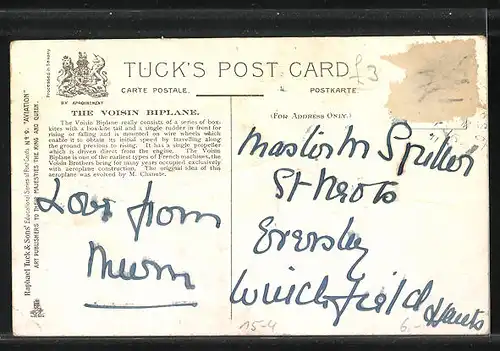 TUCK'S POST CARD
CARTE POSTALE.
POSTKARTE.
BY APPOINTMENT
(FOR ADDRESS ONLY.)
THE VOISIN BIPLANE.
The Voisin Biplane really consists of a series of box-
kites with a box-kite tail and a single rudder in front for
rising or falling and is mounted on wire wheels which
enable it to obtain its initial speed by travelling along
the ground previous to rising. It has a single propeller
which is driven direct from the engine. The Voisin
Biplane is one of the earliest types of French machines, the
Voisin Brothers being for many years occupied exclusively
with aeroplane construction. The original idea of this
aeroplane was evolved by M. Chanute.
Love from
Mum
£3
Master M Spiller
St Neots
Eversley
Winchfield
Hants
15-4
6.-
Raphael Tuck & Sons' Educational Series of Post Cards, No 9. "AVIATION"
ART PUBLISHERS TO THEIR MAJESTIES THE KING AND QUEEN.